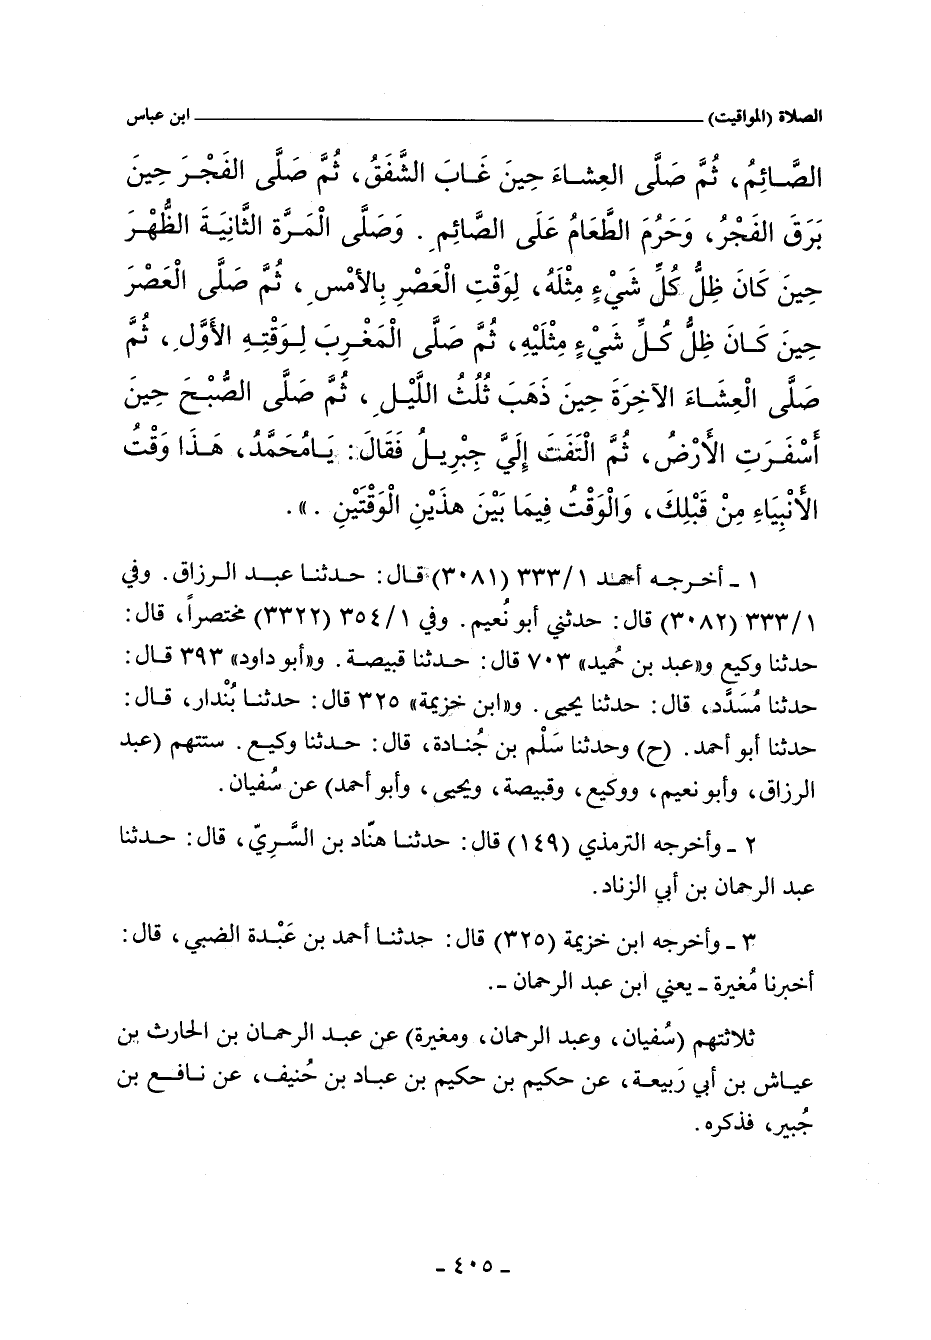 الصلاة (المواقيت) ابن عباس
الصَّائِمُ، ثُمَّ صَلَّى العِشَاءَ حِينَ غَابَ الشَّفَقُ، ثُمَّ صَلَّى الفَجْرَ حِينَ
بَرَقَ الفَجْرُ، وَحَرُمَ الطَّعَامُ عَلَى الصَّائِمِ. وَصَلَّى الْمَرَّةَ الثَّانِيَةَ الظُّهْرَ
حِينَ كَانَ ظِلُّ كُلِّ شَيْءٍ مِثْلَهُ، لِوَقْتِ الْعَصْرِ بِالأَمْسِ، ثُمَّ صَلَّى الْعَصْرَ
حِينَ كَانَ ظِلُّ كُلِّ شَيْءٍ مِثْلَيْهِ، ثُمَّ صَلَّى الْمَغْرِبَ لِوَقْتِهِ الأَوَّلِ، ثُمَّ
صَلَّى الْعِشَاءَ الآخِرَةَ حِينَ ذَهَبَ ثُلُثُ اللَّيْلِ، ثُمَّ صَلَّى الصُّبْحَ حِينَ
أَسْفَرَتِ الأَرْضُ، ثُمَّ الْتَفَتَ إِلَيَّ جِبْرِيلُ فَقَالَ: يَامُحَمَّدُ، هَذَا وَقْتُ
الأَنْبِيَاءِ مِنْ قَبْلِكَ، وَالْوَقْتُ فِيمَا بَيْنَ هذَيْنِ الْوَقْتَيْنِ.».
١ ـ أخرجه أحمد ٣٣٣/١ (٣٠٨١) قال: حدثنا عبد الرزاق. وفي
٣٣٣/١ (٣٠٨٢) قال: حدثني أبو نُعيم. وفي ٣٥٤/١ (٣٣٢٢) مختصراً، قال:
حدثنا وكيع و«عبد بن حُميد» ٧٠٣ قال: حدثنا قبيصة. و«أبو داود» ٣٩٣ قال:
حدثنا مُسَدَّد، قال: حدثنا يحيى. و«ابن خزيمة» ٣٢٥ قال: حدثنا بُنْدار، قال:
حدثنا أبو أحمد. (ح) وحدثنا سَلْم بن جُنادة، قال: حدثنا وكيع. ستتهم (عبد
الرزاق، وأبو نعيم، ووكيع، وقبيصة، ويحيى، وأبو أحمد) عن سُفيان.
٢ ـ وأخرجه الترمذي (١٤٩) قال: حدثنا هنّاد بن السَّرِيّ، قال: حدثنا
عبد الرحمان بن أبي الزناد.
٣ ـ وأخرجه ابن خزيمة (٣٢٥) قال: حدثنا أحمد بن عَبْدة الضبي، قال:
أخبرنا مُغيرة ـ يعني ابن عبد الرحمان ـ.
ثلاثتهم (سُفيان، وعبد الرحمان، ومغيرة) عن عبد الرحمان بن الحارث بن
عياش بن أبي رَبيعة، عن حكيم بن حكيم بن عباد بن حُنيف، عن نافع بن
جُبير، فذكره.
ـ ٤٠٥ ـ